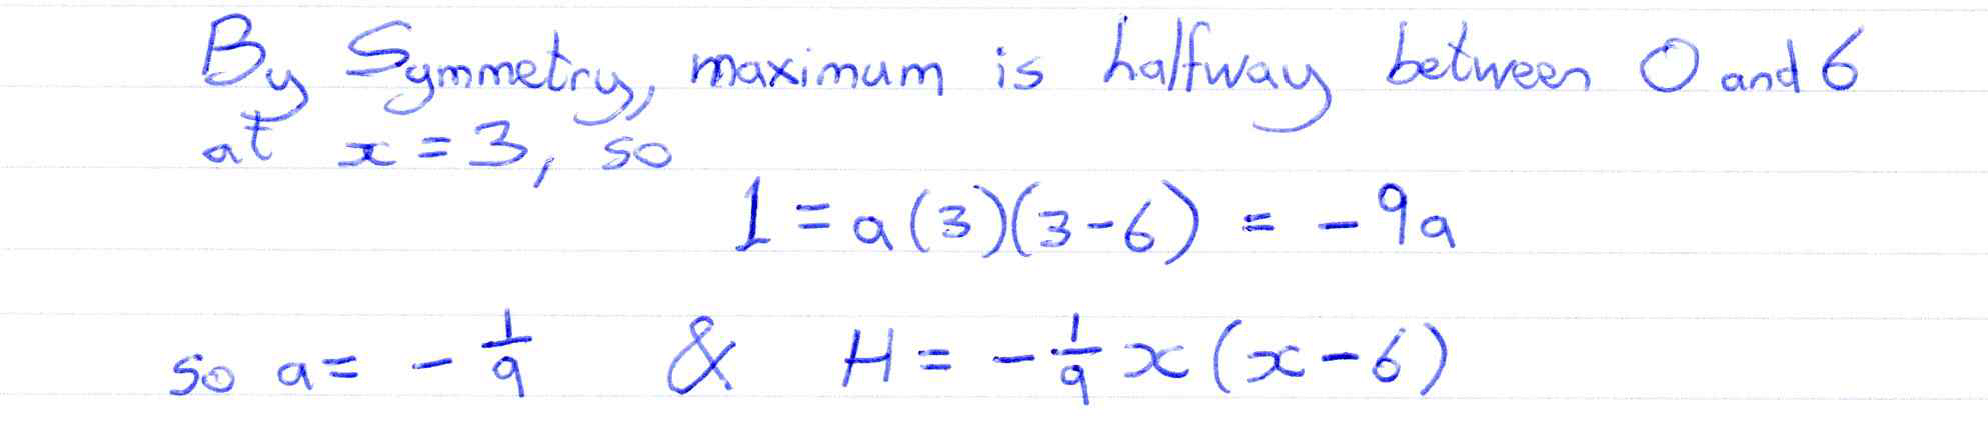 By Symmetry, maximum is halfway between 0 and 6
at x = 3, so
1 = a(3)(3-6) = -9a
so a = - 1/9 & H = - 1/9 x (x-6)